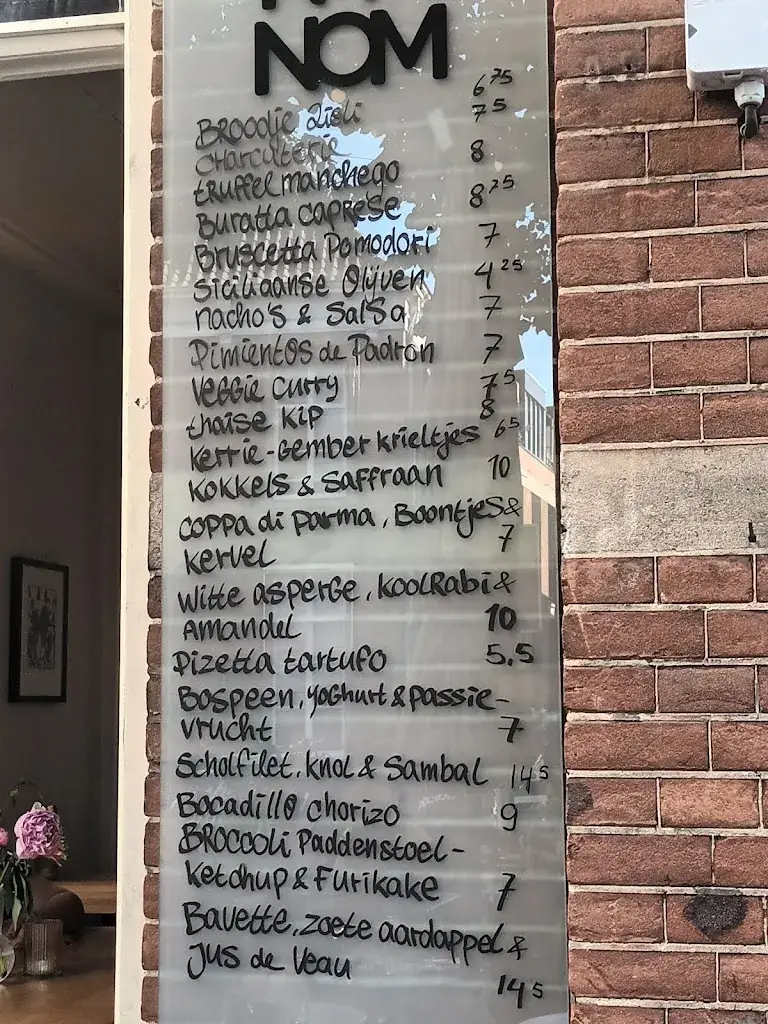 NOM
Broodje Zieli 6 75
Charcuterie 7 5
truffel manchego 8
Buratta caprese 8 25
Bruscetta Pomodori 7
Siciliaanse Olijven 4 25
nacho's & Salsa 7
Pimientos de Padron 7
Veggie curry 7 5
thaise kip 8
kerrie-Gember krieltjes 6 5
Kokkels & Saffraan 10
Coppa di Parma, Boontjes &
kervel 7
Witte asperge, koolRabi &
Amandel 10
Pizetta tartufo 5,5
Bospeen, yoghurt & passie-
vrucht 7
Scholfilet, knol & Sambal 14 5
Bocadillo chorizo 9
BROCCOLi Paddenstoel-
ketchup & Furikake 7
Bavette, zoete aardappel &
Jus de Veau 14 5